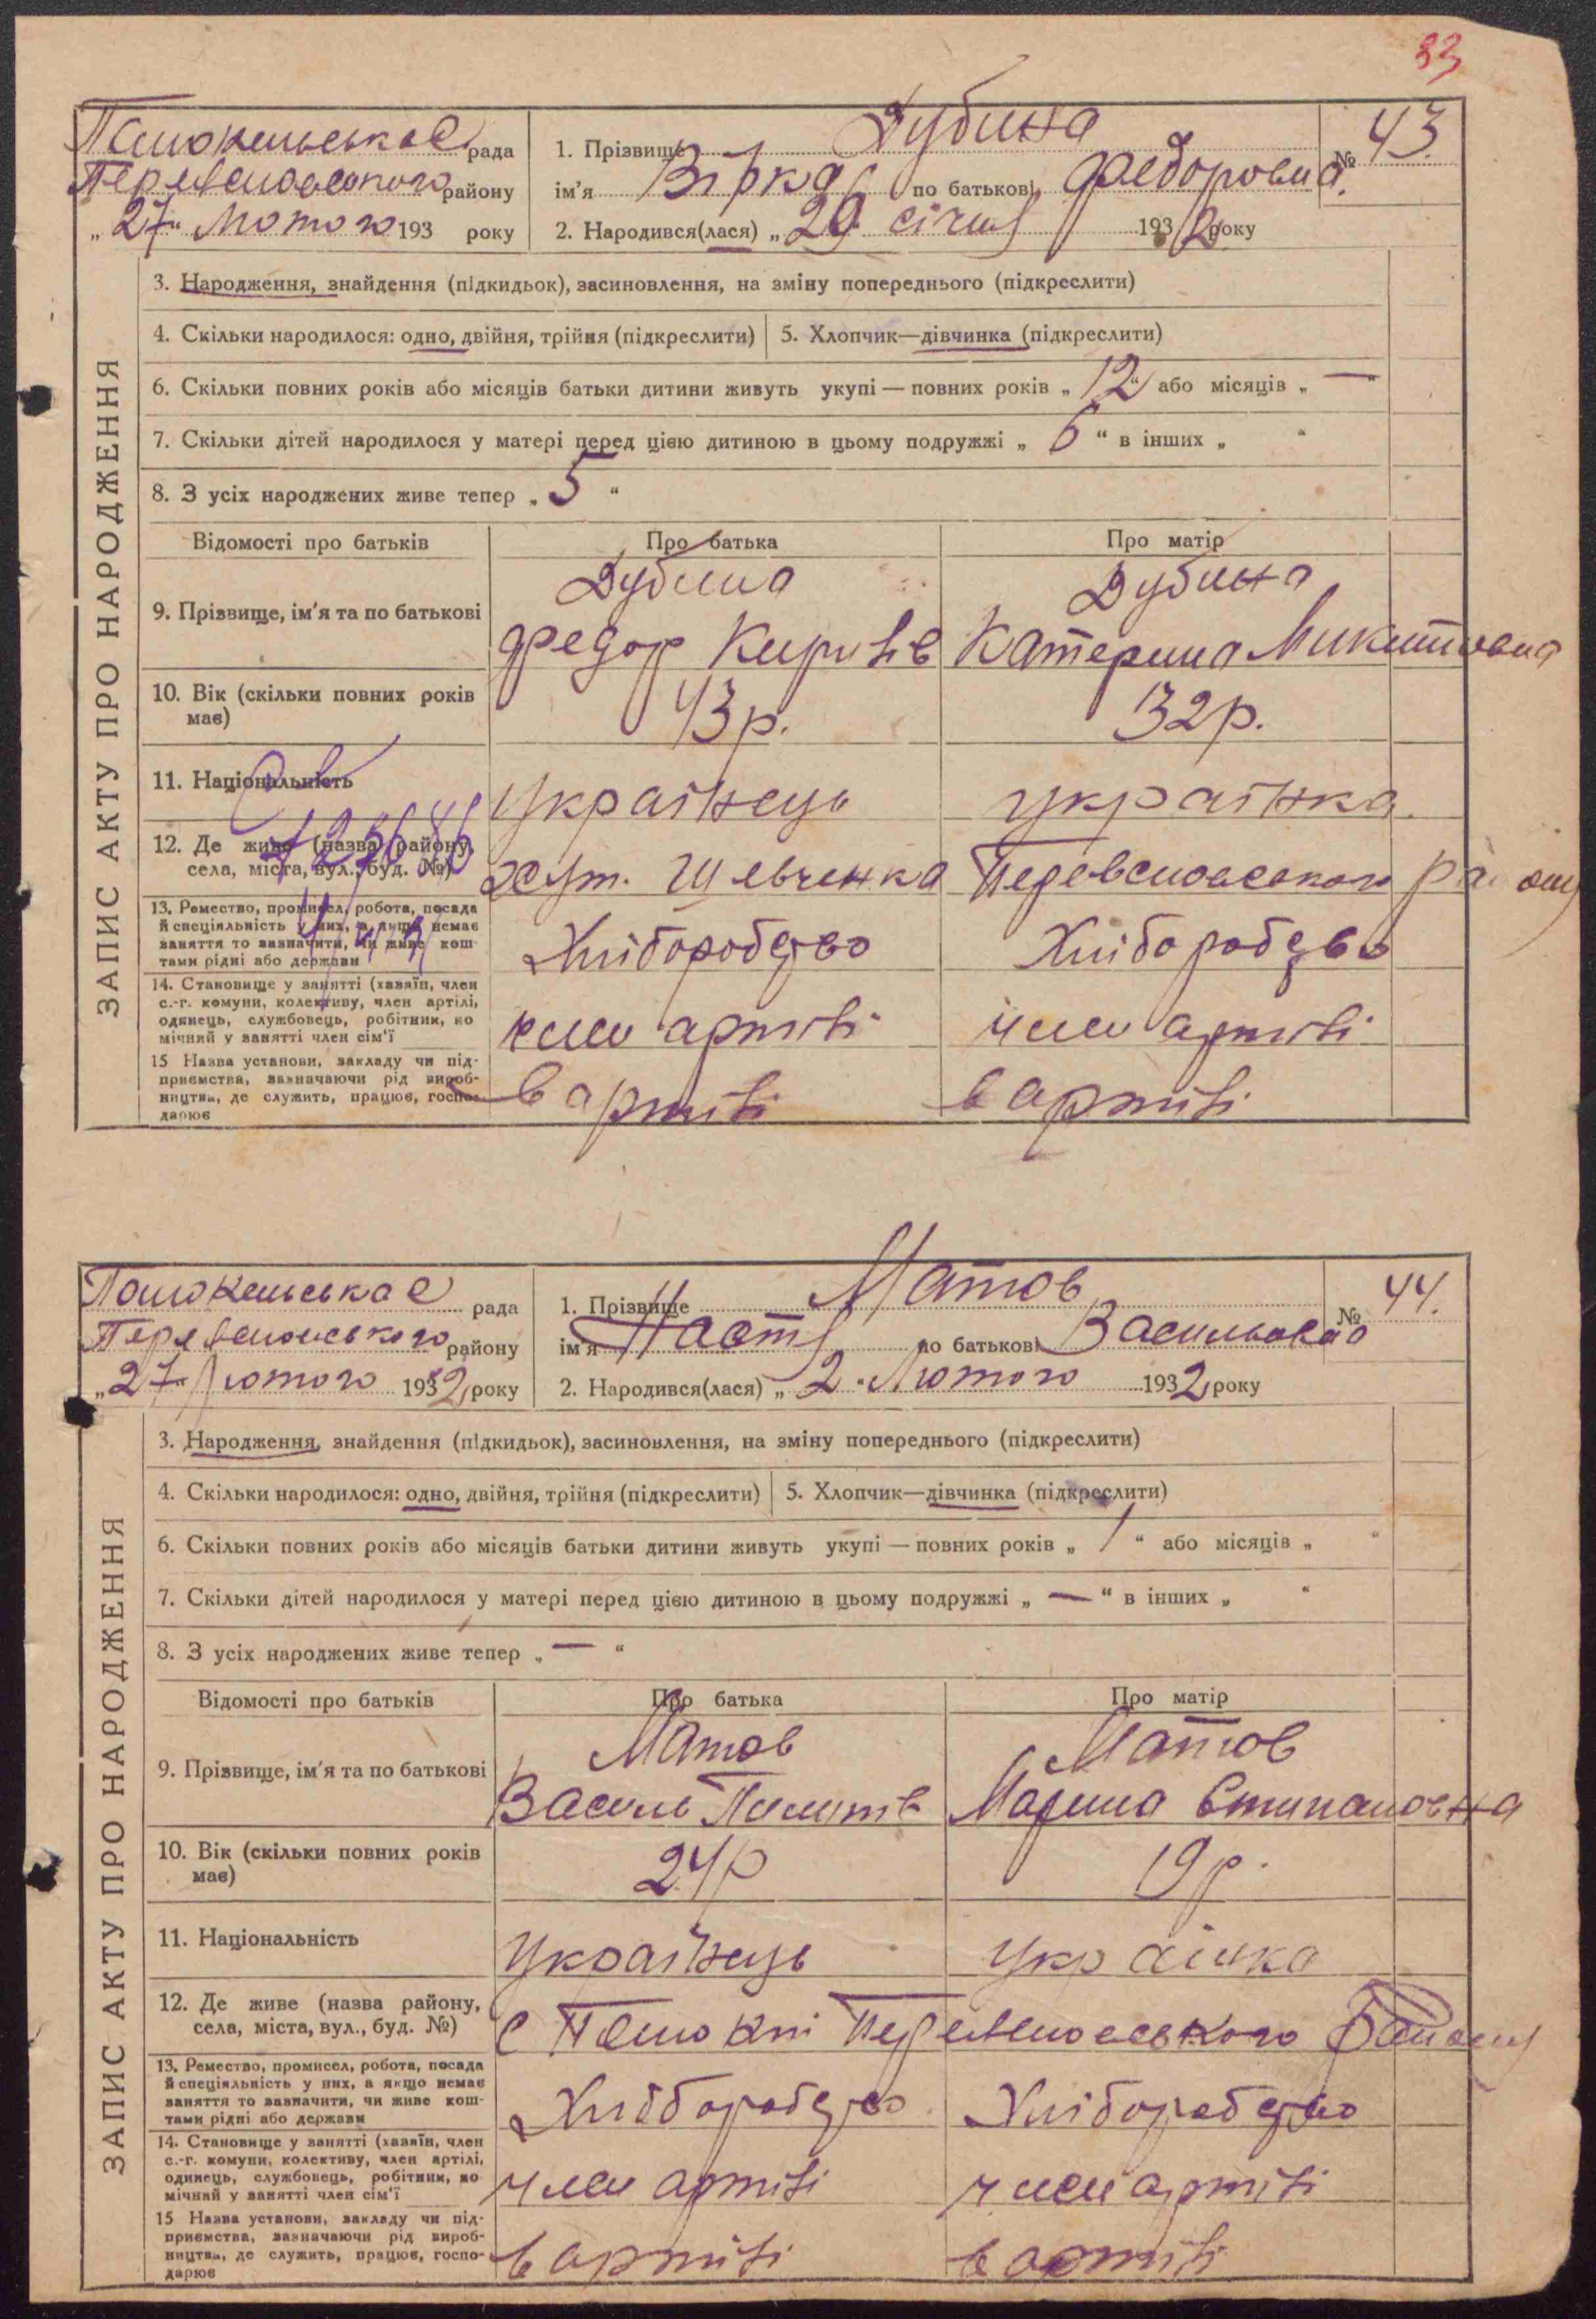 33
Дубина
рада 1. Прізвище № 43.
району ім'я Вірка по батькові Федоровна
„27" Лютого 193 року 2. Народився(лася) „29 січня 1932 року
ЗАПИС АКТУ ПРО НАРОДЖЕННЯ
3. Народження, знайдення (підкидьок), засиновлення, на зміну попереднього (підкреслити)
4. Скільки народилося: одно, двійня, трійня (підкреслити) 5. Хлопчик—дівчинка (підкреслити)
6. Скільки повних років або місяців батьки дитини живуть укупі — повних років „ 12 “ або місяців „ — “
7. Скільки дітей народилося у матері перед цією дитиною в цьому подружжі „ 6 “ в інших „ “
8. З усіх народжених живе тепер „ 5 “
Відомості про батьків Про батька Про матір
Дубина Дубина
9. Прізвище, ім'я та по батькові Федор Кирилів Катерина Микитовна
10. Вік (скільки повних років має) 43 р. 32 р.
11. Національність українець українка.
12. Де живе (назва району, села, міста, вул., буд. №) хут. Шевченка району
13. Ремество, промисел, робота, посада й спеціяльність у них, а якщо немає заняття то зазначити, чи живе коштами рідні або держави Хліборобство Хліборобство
14. Становище у занятті (хазяїн, член с.-г. комуни, колективу, член артілі, одинець, службовець, робітник, помічний у занятті член сім'ї член артілі член артілі
15 Назва установи, закладу чи підприємства, зазначаючи рід виробництва, де служить, працює, господарює в артілі в артілі
Матов
рада 1. Прізвище № 44.
району ім'я Настя по батькові Васильовна
„27" Лютого 1932 року 2. Народився(лася) „ 2 “ Лютого 1932 року
ЗАПИС АКТУ ПРО НАРОДЖЕННЯ
3. Народження, знайдення (підкидьок), засиновлення, на зміну попереднього (підкреслити)
4. Скільки народилося: одно, двійня, трійня (підкреслити) 5. Хлопчик—дівчинка (підкреслити)
6. Скільки повних років або місяців батьки дитини живуть укупі — повних років „ 1 “ або місяців „ “
7. Скільки дітей народилося у матері перед цією дитиною в цьому подружжі „ — “ в інших „ “
8. З усіх народжених живе тепер „ — “
Відомості про батьків Про батька Про матір
Матов Матов
9. Прізвище, ім'я та по батькові Василь Марина Степановна
10. Вік (скільки повних років має) 24 р 19 р.
11. Національність українець українка
12. Де живе (назва району, села, міста, вул., буд. №) с району
13. Ремество, промисел, робота, посада й спеціяльність у них, а якщо немає заняття то зазначити, чи живе коштами рідні або держави Хліборобство Хліборобство
14. Становище у занятті (хазяїн, член с.-г. комуни, колективу, член артілі, одинець, службовець, робітник, помічний у занятті член сім'ї член артілі член артілі
15 Назва установи, закладу чи підприємства, зазначаючи рід виробництва, де служить, працює, господарює в артілі в артілі